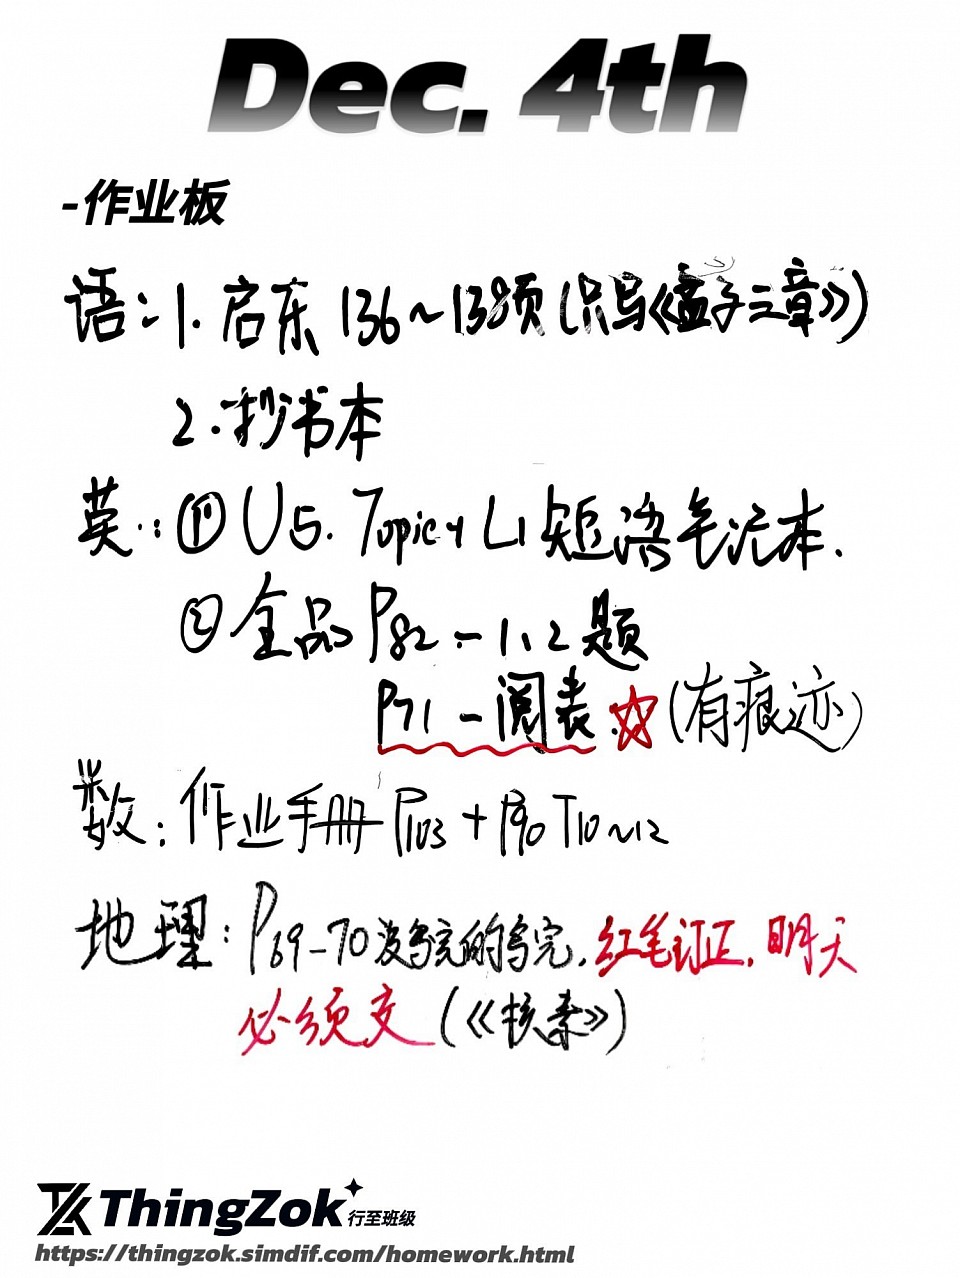 Dec. 4th
-作业板
语：1. 启东 136~138页 (只写《孟子三章》)
2. 抄书本
英：① U5. Topic L1 短语笔记本.
② 全品 P82 - 1、2题
P71 - 阅表 ☆ (有痕迹)
数：作业手册 P103 + P90 T10~12
地理：P69-70没写完的写完, 红笔订正, 明天
必须交 (《核素》)
ThingZok 行至班级
https://thingzok.simdif.com/homework.html